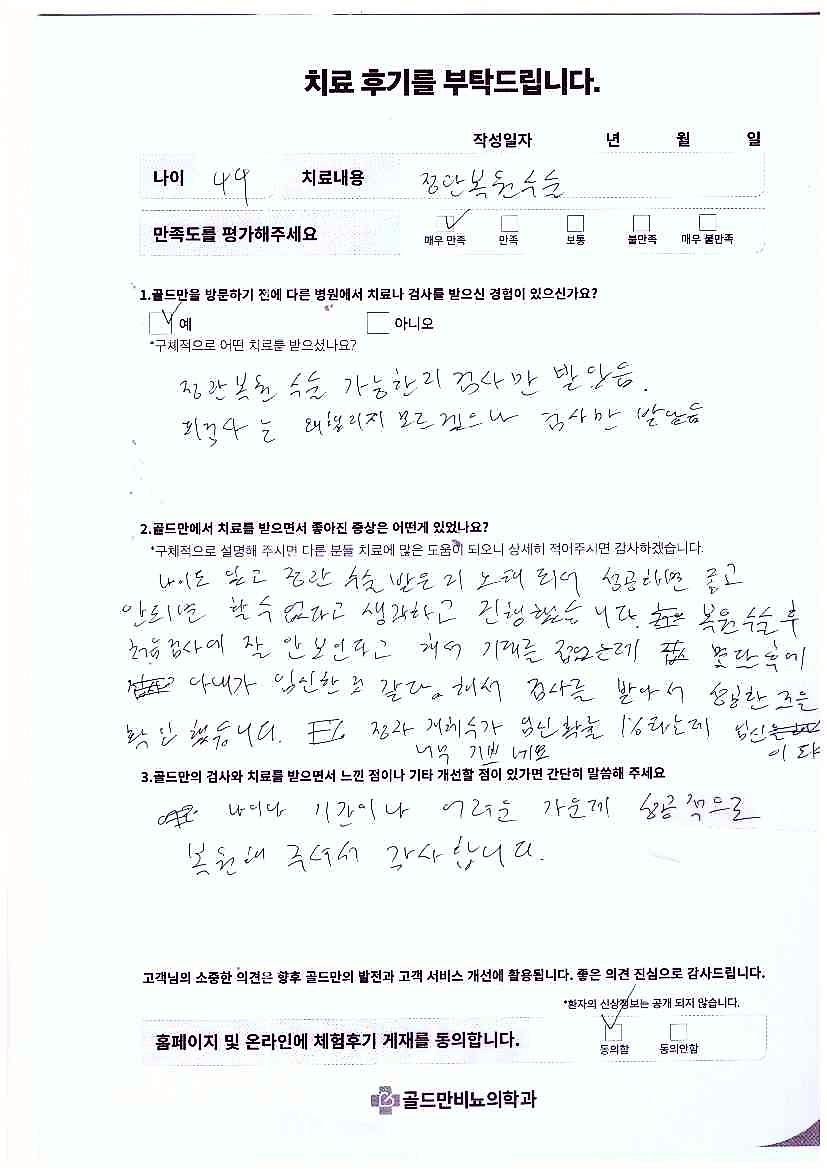 치료 후기를 부탁드립니다.
작성일자 년 월 일
나이 49 치료내용 정관복원수술
만족도를 평가해주세요 매우 만족 만족 보통 불만족 매우 불만족
1.골드만을 방문하기 전에 다른 병원에서 치료나 검사를 받으신 경험이 있으신가요?
예 아니오
*구체적으로 어떤 치료를 받으셨나요?
정관복원 수술 가능한지 검사만 받았음.
모르겠으나 검사만 받았음
2.골드만에서 치료를 받으면서 좋아진 증상은 어떤게 있었나요?
*구체적으로 설명해 주시면 다른 분들 치료에 많은 도움이 되오니 상세히 적어주시면 감사하겠습니다.
나이도 많고 정관 수술 받은지 오래 되어 성공하면 좋고
안되면 할 수 없다고 생각하고 진행했습니다. 복원수술 후
처음 검사에 잘 안보인다고 해서 기대를 접었는데 몇달 후에
아내가 임신한 것 같다. 해서 검사를 받아서 임신한 것을
확인했습니다. 정관 재개수가 임신 확률 1%라는데 임신
이라
너무 기쁘네요
3.골드만의 검사와 치료를 받으면서 느낀 점이나 기타 개선할 점이 있가면 간단히 말씀해 주세요
나이나 기간이나 어려운 가운데 성공적으로
복원해 주셔서 감사합니다.
고객님의 소중한 의견은 향후 골드만의 발전과 고객 서비스 개선에 활용됩니다. 좋은 의견 진심으로 감사드립니다.
*환자의 신상정보는 공개 되지 않습니다.
홈페이지 및 온라인에 체험후기 게재를 동의합니다. 동의함 동의안함
골드만비뇨의학과